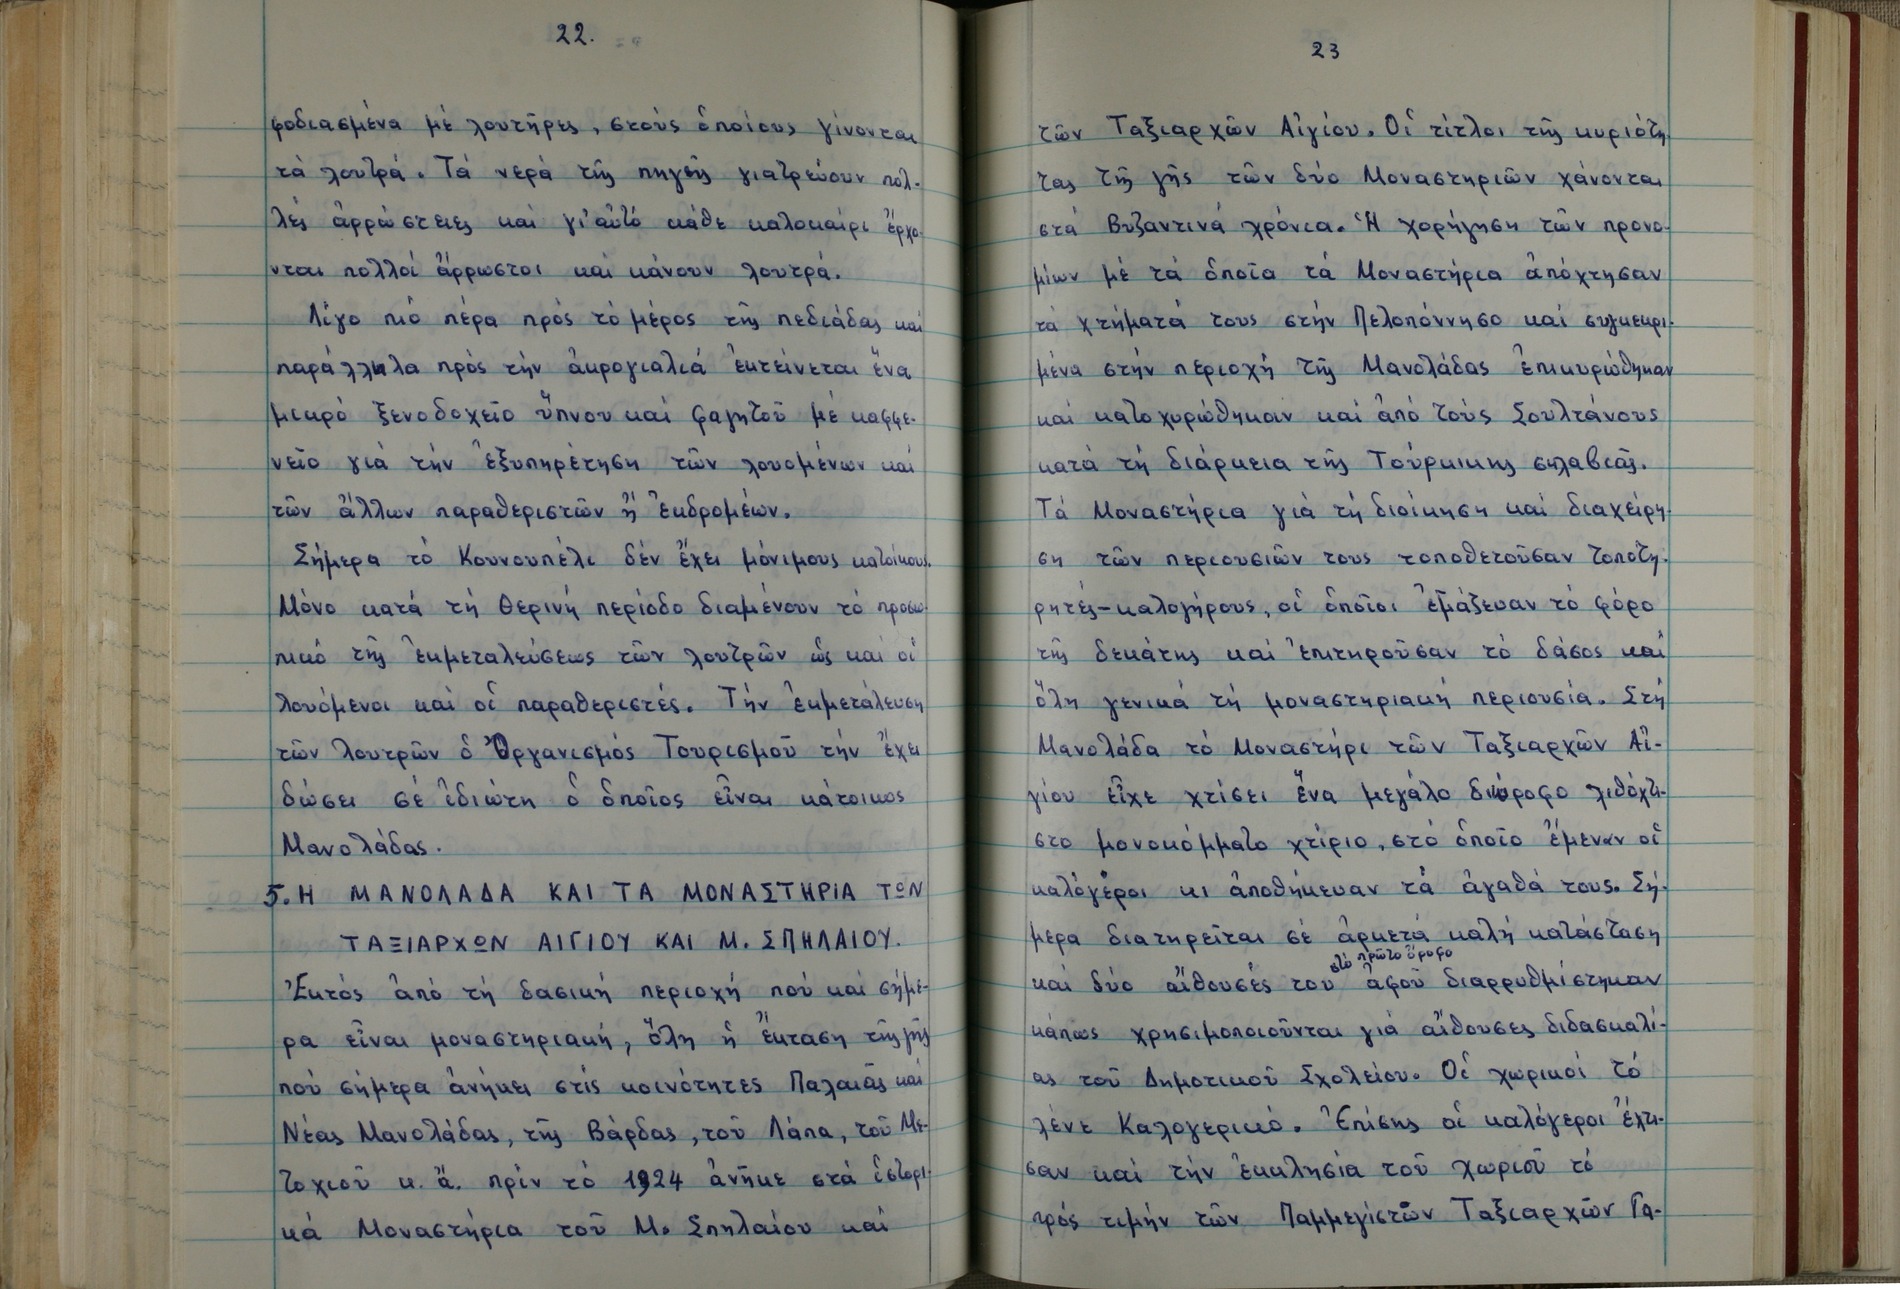 22.
φοδιασμένα μέ λουτῆρες, στούς ὁποίους γίνονται
τά λουτρά. Τά νερά τῆς πηγῆς γιατρεύουν πολ-
λές ἀρρώστειες καί γι' αὐτό κάθε καλοκαίρι ἔρχο-
νται πολλοί ἄρρωστοι καί κάνουν λουτρά.
Λίγο πιό πέρα πρός τό μέρος τῆς πεδιάδας καί
παράλληλα πρός τήν ἀκρογιαλιά ἐκτείνεται ἕνα
μικρό ξενοδοχεῖο ὕπνου καί φαγητοῦ μέ καφφε-
νεῖο γιά τήν ἐξυπηρέτηση τῶν λουομένων καί
τῶν ἄλλων παραθεριστῶν ἤ ἐκδρομέων.
Σήμερα τό Κουνουπέλι δέν ἔχει μόνιμους κατοίκους.
Μόνο κατά τή θερινή περίοδο διαμένουν τό προσω-
πικό τῆς ἐκμεταλεύσεως τῶν λουτρῶν ὡς καί οἱ
λουόμενοι καί οἱ παραθεριστές. Τήν ἐκμετάλευση
τῶν λουτρῶν ὁ Ὀργανισμός Τουρισμοῦ τήν ἔχει
δώσει σέ ἰδιώτη ὁ ὁποῖος εἶναι κάτοικος
Μανολάδας.
5. Η ΜΑΝΟΛΑΔΑ ΚΑΙ ΤΑ ΜΟΝΑΣΤΗΡΙΑ ΤΩΝ
ΤΑΞΙΑΡΧΩΝ ΑΙΓΙΟΥ ΚΑΙ Μ. ΣΠΗΛΑΙΟΥ.
Ἐκτός ἀπό τή δασική περιοχή πού καί σήμε-
ρα εἶναι μοναστηριακή, ὅλη ἡ ἔκταση τῆς γῆς
πού σήμερα ἀνήκει στίς κοινότητες Παλαιᾶς καί
Νέας Μανολάδας, τῆς Βάρδας, τοῦ Λάπα, τοῦ Με-
τοχιοῦ κ. ἄ. πρίν τό 1924 ἀνῆκε στά ἱστορι-
κά Μοναστήρια τοῦ Μ. Σπηλαίου καί
23
τῶν Ταξιαρχῶν Αἰγίου. Οἱ τίτλοι τῆς κυριότη
τας τῆς γῆς τῶν δύο Μοναστηριῶν χάνονται
στά Βυζαντινά χρόνια. Ἡ χορήγηση τῶν προνο-
μίων μέ τά ὁποῖα τά Μοναστήρια ἀπόχτησαν
τά χτήματά τους στήν Πελοπόννησο καί συγκεκρι-
μένα στήν περιοχή τῆς Μανολάδας ἐπικυρώθηκαν
καί κατοχυρώθηκαν καί ἀπό τούς Σουλτάνους
κατά τή διάρκεια τῆς Τούρκικης σκλαβιᾶς.
Τά Μοναστήρια γιά τή διοίκηση καί διαχείρη-
ση τῶν περιουσιῶν τους τοποθετοῦσαν τοποτη-
ρητές-καλογήρους, οἱ ὁποῖοι ἐμάζευαν τό φόρο
τῆς δεκάτης καί ἐπιτηροῦσαν τό δάσος καί
ὅλη γενικά τή μοναστηριακή περιουσία. Στή
Μανολάδα τό Μοναστήρι τῶν Ταξιαρχῶν Αἰ-
γίου εἶχε χτίσει ἕνα μεγάλο διώροφο λιθόχτι-
στο μονοκόμματο χτίριο, στό ὁποῖο ἔμεναν οἱ
καλόγεροι κι ἀποθήκευαν τά ἀγαθά τους. Σή-
μερα διατηρεῖται σέ ἀρκετά καλή κατάσταση
στό πρῶτο ὄροφο
καί δύο αἴθουσές του ἀφοῦ διαρρυθμίστηκαν
κάπως χρησιμοποιοῦνται γιά αἴθουσες διδασκαλί-
ας τοῦ Δημοτικοῦ Σχολείου. Οἱ χωρικοί τό
λένε Καλογερικό. Ἐπίσης οἱ καλόγεροι ἔχτι-
σαν καί τήν ἐκκλησία τοῦ χωριοῦ τό
πρός τιμήν τῶν Παμμεγίστων Ταξιαρχῶν Γα-